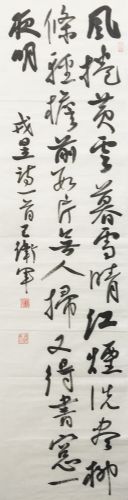 風捲黄雲暮雪晴江煙洗盡柳
條輕檐前數片無人掃又得書窗一
夜明
戎昱詩一首王衛軍